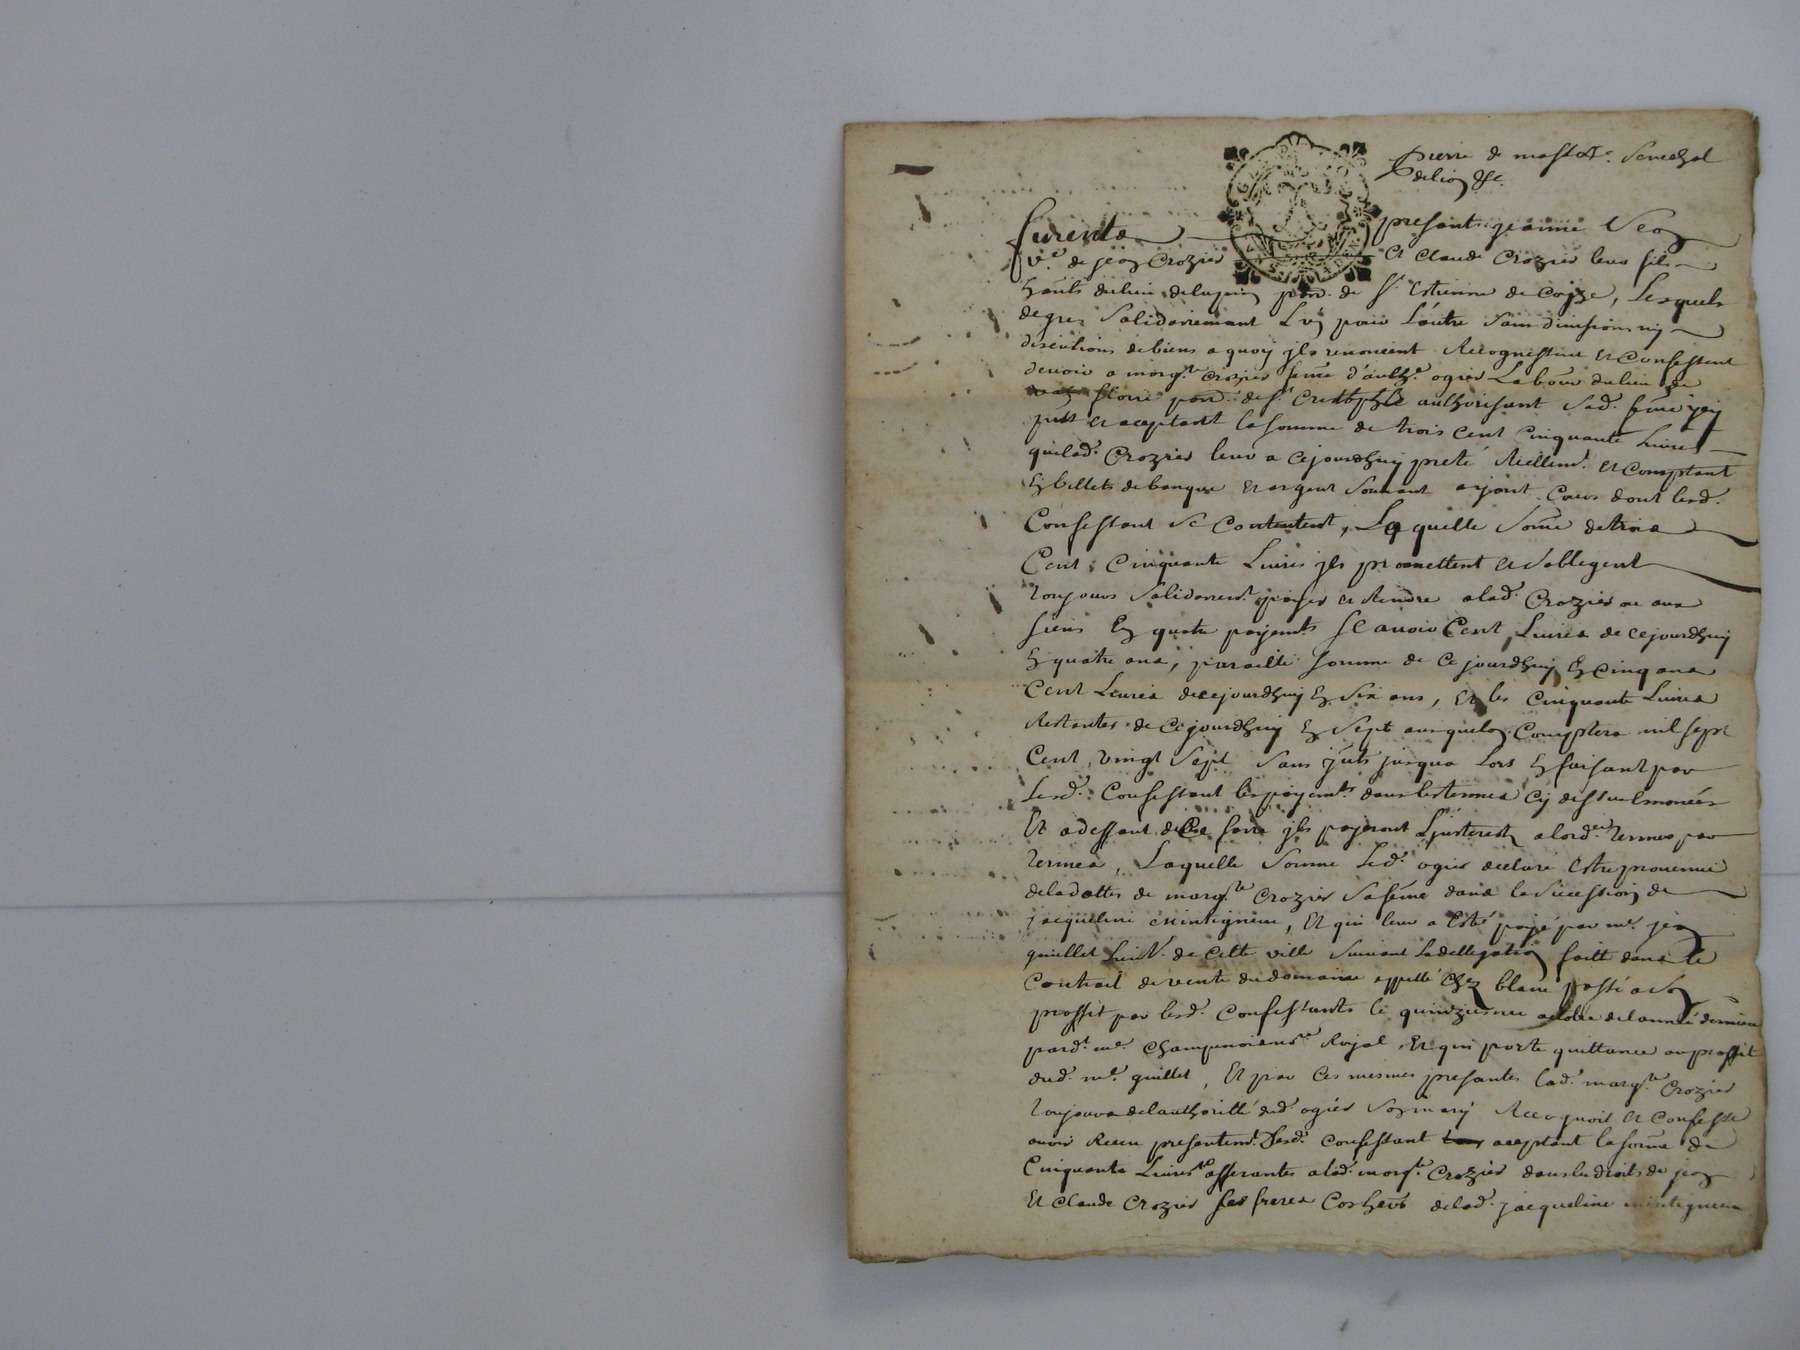 pierre de senechal
de lion &c.
furente presents jeanne
v.e de jean Crozier et Claude Crozier leur fils
de St. Estienne de Coize, Lesquels
de grez Solidairemant L'un pour L'autre Sans division ny
discutions de biens a quoy ils renoncent Recognessent et Confessent
devoir a marg.te Crozier feme d'anth.e ogier Labour du lieu de
de St. authorisant Sad. feme
pnt et aceptant la somme de trois Cent Cinquante Livres
que lad. Crozier leur a Cejourdhuy preté Réellem.t et Comptant
En billets de banque et argent Sonnant ayant Cours dont lesd.
Confessant Se Contentent, Laquelle Some de trois
Cent Cinquante Livres jls promettent et Soblegent
toujours Solidairem.t payer et Rendre a lad. Crozier ou aux
siens En quatre payem.ts sCavoir Cent Livres de cejourdhuy
En quatre ans, pareille somme de Cejourdhuy En Cinq ans
Cent Livres de cejourdhuy En Six ans, et les Cinquante Livres
Restantes de Cejourdhuy En Sept ans quelon Comptera mil sept
Cent vingt Sept Sans jusqua Lors En faisant par
Lesd. Confessant les payem.ts dans les termes Cy dessus
Et a deffaut de Ce faire jls payeront L'jnterest a lad. termes par
termes, Laquelle Somme Led. ogier declare Estre provenue
de la dotte de marg.te Crozier Sa feme dans la Sucession de
jacqueline, Et qui leur a Esté payé par me. jean
guillet de Cette ville Suivant La dellegation faitte dans le
Contrait de vente du domaine appellé Chez blanc passé a Son
proffit par lesd. Confessants le quinziesme de lannée derniere
pard.t me. Royal, Et qui porte quittance au proffit
dud. me. guillet, Et par Ces mesmes presantes lad. marg.te Crozier
toujours de lauthoritté dud. ogier Son mary Recognoit et Confesse
avoir Receu presantem.t Desd. Confessant aceptant la some de
Cinquante Livres afferantes a lad. marg.te Crozier dans les droits de jean
Et Claude Crozier ses freres de lad. jacqueline